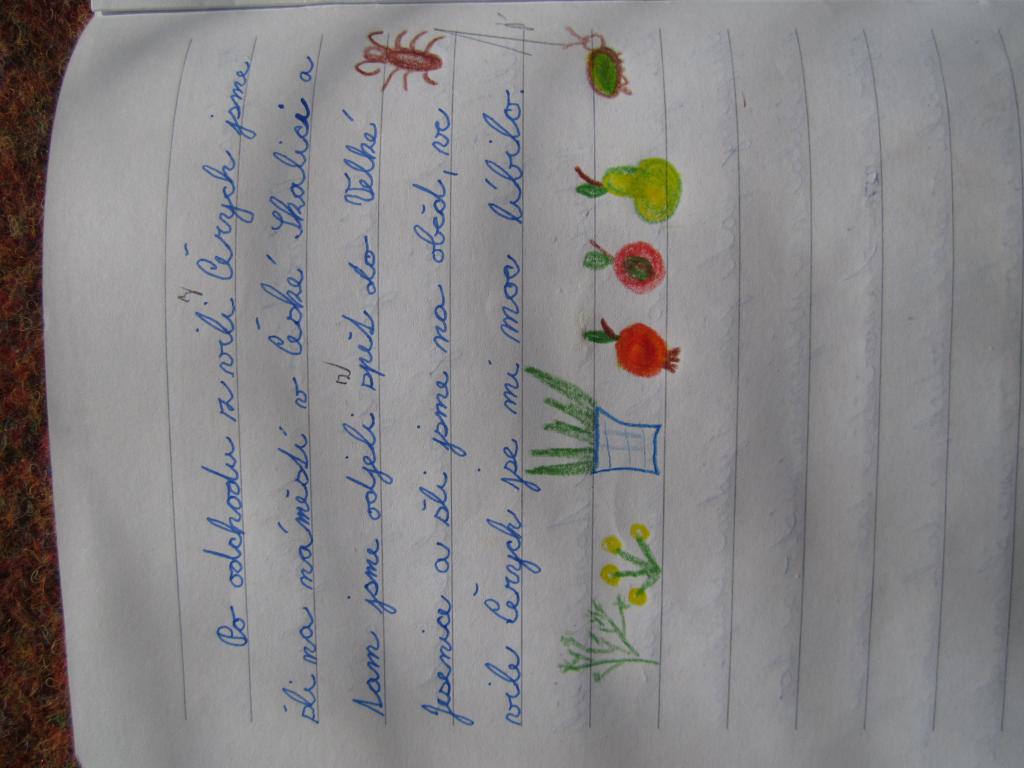 Po odchodu z vili Čerych jsme
šli na náměstí v České Skalici a
tam jsme odjeli zpět do Velké
Jesenice a šli jsme na oběd, ve
vile Čerych jse mi moc líbilo.